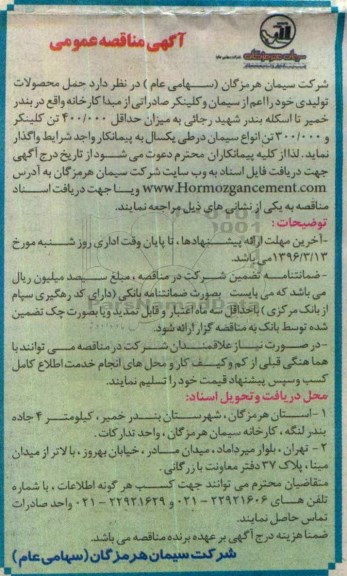 آگهی مناقصه عمومی
شرکت سیمان هرمزگان (سهامی عام) در نظر دارد حمل محصولات
تولیدی خود را اعم از سیمان و کلینکر صادراتی از مبدا کارخانه واقع در بندر
خمیر تا اسکله بندر شهید رجائی به میزان حداقل ۴۰۰/۰۰۰ تن کلینکر
و ۳۰۰/۰۰۰ تن انواع سیمان در طی یکسال به پیمانکار واجد شرایط واگذار
نماید. لذا از کلیه پیمانکاران محترم دعوت می شود از تاریخ درج آگهی
جهت دریافت فایل اسناد به وب سایت شرکت سیمان هرمزگان به آدرس
www.Hormozgancement.com ویا جهت دریافت اسناد
مناقصه به یکی از نشانی های ذیل مراجعه نمایند.
توضیحات:
-آخرین مهلت ارائه پیشنهادها، تا پایان وقت اداری روز شنبه مورخ
۱۳۹۶/۳/۱۳ می باشد.
-ضمانتنامه تضمین شرکت در مناقصه، مبلغ سیصد میلیون ریال
می باشد که می بایست بصورت ضمانتنامه بانکی (دارای کد رهگیری سپام
از بانک مرکزی) باحداقل سه ماه اعتبار و قابل تمدید ویا بصورت چک تضمین
شده توسط بانک به مناقصه گزار ارائه شود.
-در صورت نیاز علاقمندان شرکت در مناقصه می توانند با
هماهنگی قبلی از کم و کیف کار و محل های انجام خدمت اطلاع کامل
کسب و سپس پیشنهاد قیمت خود را تسلیم نمایند.
محل دریافت و تحویل اسناد:
۱-استان هرمزگان، شهرستان بندر خمیر، کیلومتر ۴ جاده
بندر لنگه، کارخانه سیمان هرمزگان، واحد تدارکات.
۲- تهران، بلوار میرداماد، میدان مادر، خیابان بهروز، بالاتر از میدان
مینا، پلاک ۳۷ دفتر معاونت بازرگانی.
متقاضیان محترم می توانند جهت کسب هر گونه اطلاعات، با شماره
تلفن های ۲۲۹۲۱۶۰۶ - ۰۲۱ و ۲۲۹۲۱۶۲۹ - ۰۲۱ واحد صادرات
تماس حاصل نمایند.
ضمنا هزینه درج آگهی بر عهده برنده مناقصه می باشد.
شرکت سیمان هرمزگان (سهامی عام)